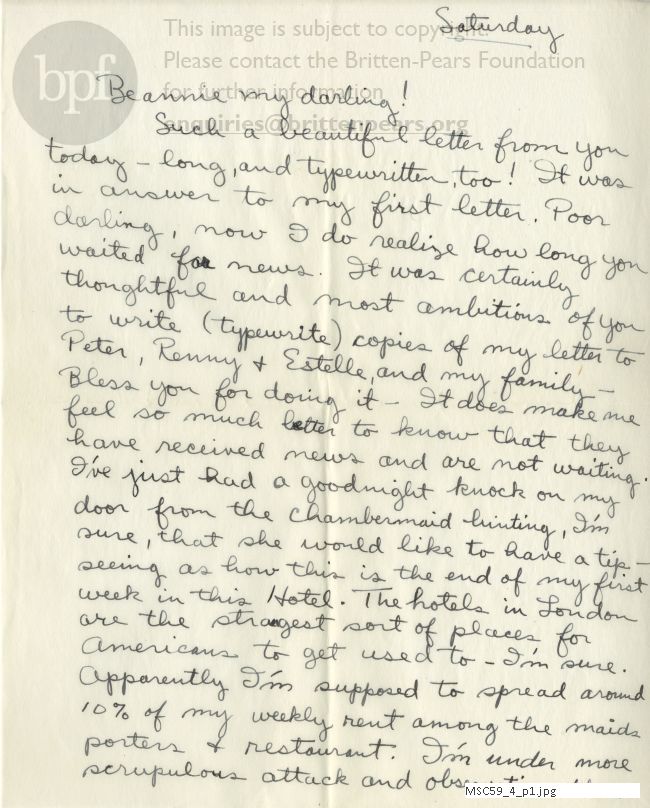 bpf
This image is subject to copyright.
Please contact the Britten-Pears Foundation
for further information
enquiries@brittenpears.org
Saturday
Beannie my darling!
Such a beautiful letter from you
today – long, and typewritten, too! It was
in answer to my first letter. Poor
darling, now I do realize how long you
waited for news. It was certainly
thoughtful and most ambitious of you
to write (typewrite) copies of my letter to
Peter, Renny & Estelle, and my family –
Bless you for doing it – It does make me
feel so much better to know that they
have received news and are not waiting.
I've just had a goodnight knock on my
door from the chambermaid hinting, I'm
sure, that she would like to have a tip –
seeing as how this is the end of my first
week in this Hotel. The hotels in London
are the strangest sort of places for
Americans to get used to – I'm sure.
Apparently I'm supposed to spread around
10% of my weekly rent among the maids
porters & restaurant. I'm under more
scrupulous attack and
MSC59_4_p1.jpg